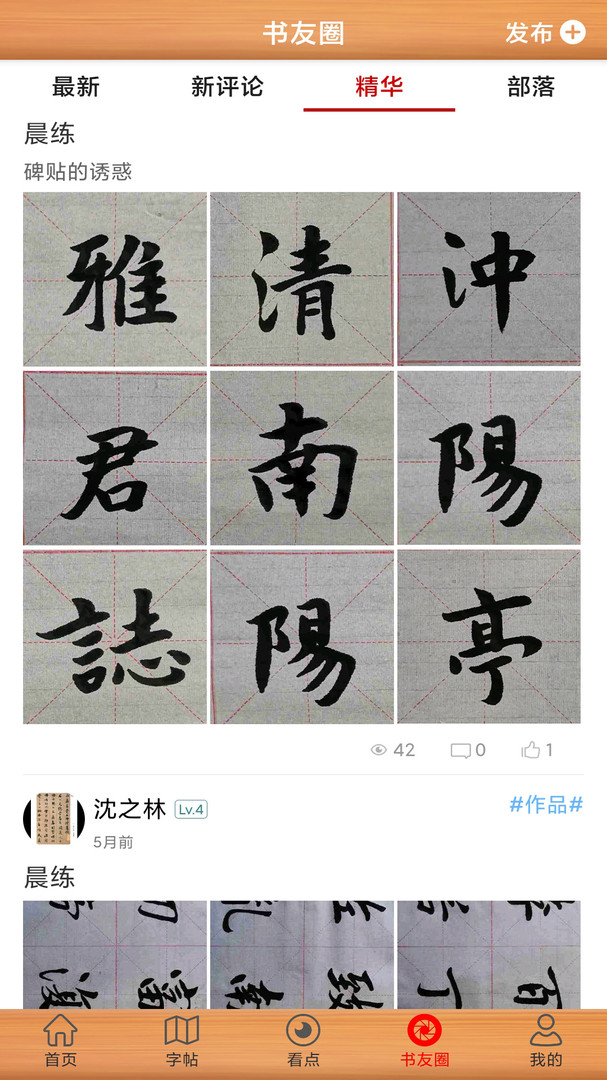 书友圈
发布
最新 新评论 精华 部落
晨练
碑贴的诱惑
雅 清 沖
君 南 陽
誌 陽 亭
42 0 1
沈之林 Lv.4 #作品#
5月前
晨练
复 富 南 致 丁 百
首页 字帖 看点 书友圈 我的